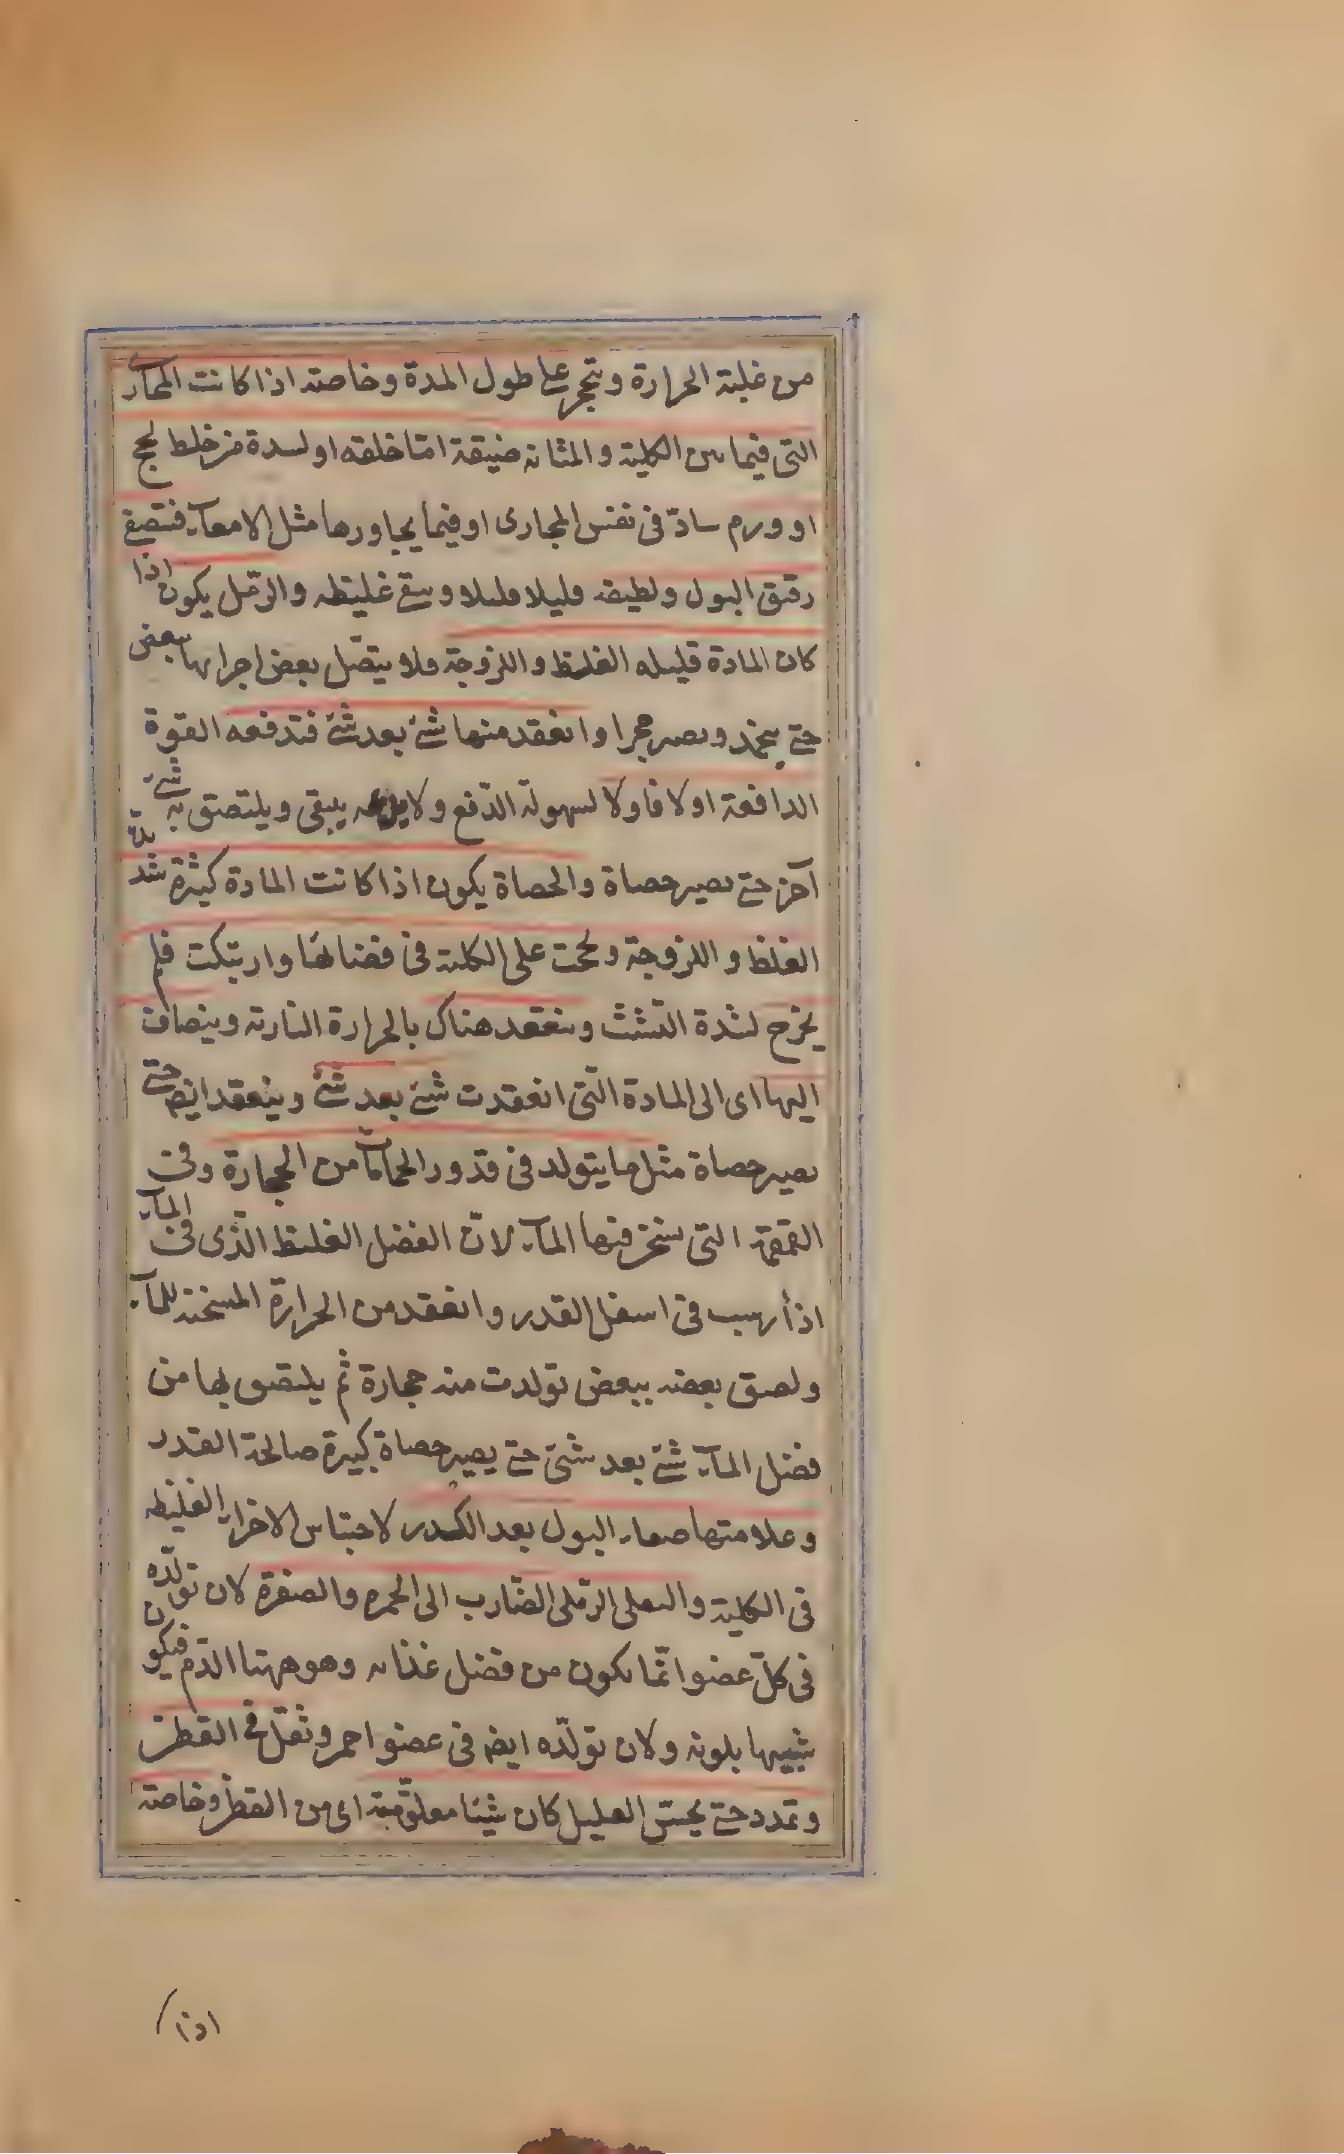 من غلبة الحرارة ويتحجر على طول المدة وخاصة اذا كانت المجارى
التى فيما بين الكلية والمثانة ضيقة اما خلقه او لسدة من خلط لحج
او ورم سادّ فى نفس المجارى او فيما يجاورها مثل الامعآء فتصفى
رقيق البول ولطيفه قليلا قليلا ويبقى غليظه والرّمل يكون اذا
كان المادة قليله الغلظ واللزوجة فلا يتصّل بعض اجزايها ببعض
حتى ينجمد ويصير حجرا وانعقد منها شئ بعد شئ فتدفعه القوة
الدافعة اولا فاولا لسهولة الدّفع ولا يبقى ويلتصق به شئ
آخر حتى يصير حصاة والحصاة يكون اذا كانت المادة كثيرة شديدة
الغلظ واللزوجة ولحجت على الكلية فى فضائها وارتبكت فلم
يخرج لشدة التشبث وينعقد هناك بالحرارة النارية وينضاف
اليها اى الى المادة الّتى انعقدت شئ بعد شئ وينعقد ايضا حتى
يصير حصاة مثل ما يتولد فى قدور الحمامات من الحجارة وفى
القمقمة التى يسخن فيها المآء لانّ الفضل الغليظ الّذى فى المآء
اذا رسب فى اسفل القدر وانعقد من الحرارة المسخنة للمآء
ولصق بعضه ببعض تولدت منه حجارة ثم يلتصق بها من
فضل المآء شئ بعد شئ حتى يصير حصاة كبيرة صالحة القدر
وعلامتها صفاء البول بعد الكدر لاحتباس الاجزاء الغليظه
فى الكلية والثفل الرّملى الضّارب الى الحمره والصفرة لان تولّده
فى كلّ عضو انّما يكون من فضل غذائه وهو ههنا الدّم فيكون
شبيها بلونه ولان تولّده ايضا فى عضو احمر وثقل فى القطن
وتمدد حتى يحسّ العليل كان شيئا معلّق منه اى من القطن وخاصة
اذا